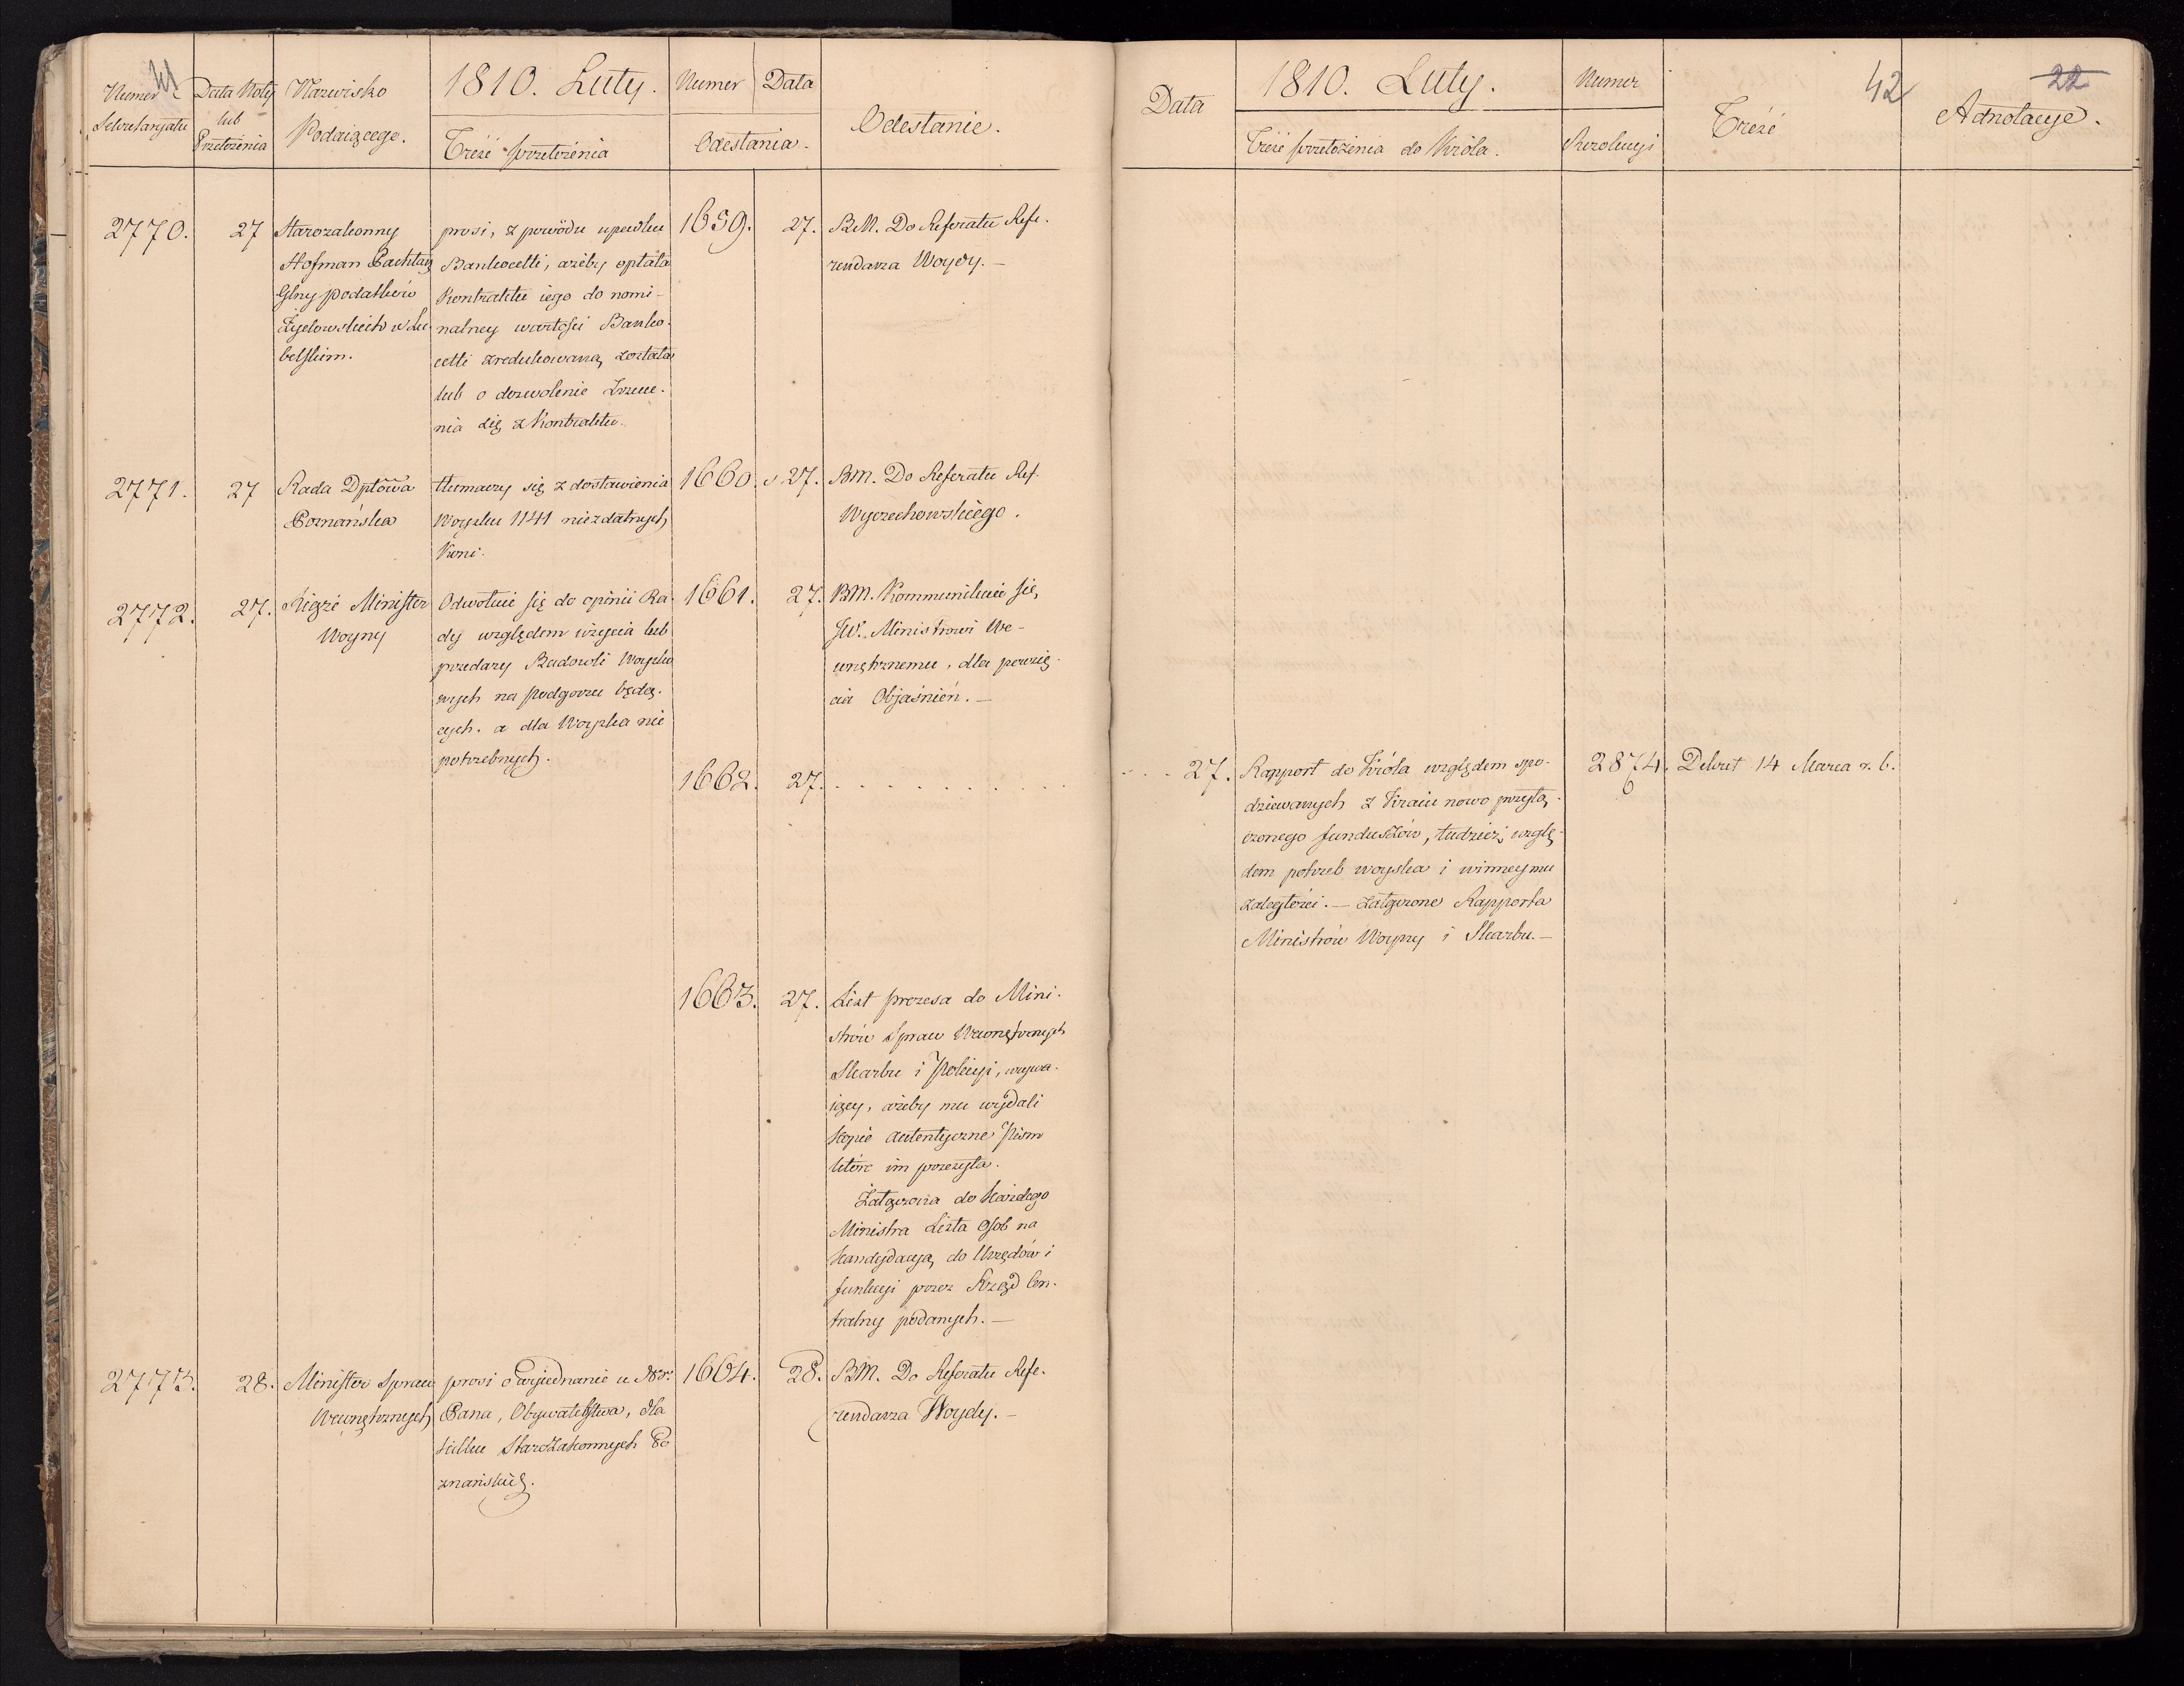 41
Numer
Sekretaryatu
Data Noty
lub
Przełożenia
Nazwisko
Podaiącego.
1810. Luty.
Treść przełożenia
Numer Data
Odesłania.
Odesłanie.
2770. 27
Starozakonny
Hofman Pachtarz
Glny podatków
Żydowskich w Lu-
belskim.
prosi, z powodu upadku
Bankocetli, ażeby opłata
Kontraktu iego do nomi-
nalney wartości Banko-
cetli zredukowaną została
lub o dozwolenie Zrzuce-
nia się z Kontraktu.
1659. 27.
BM. Do Referatu Refe-
rendarza Woydy. —
2771. 27
Rada Dptowa
Poznańska
tłumaczy się z dostawienia
Woysku 1141 niezdatnych
Koni.
1660. 27.
BM. Do Referatu Ref.
Wyczechowskiego.
2772. 27.
Xiąże Minister
Woyny
Odwołuie się do opinii Ra-
dy względem użycia lub
przedaży Budowli Woysko
wych na Podgorzu będą-
cych. a dla Woyska nie
potrzebnych.
1661. 27.
BM. Kommunikuie się
JW. Ministrowi We-
wnętrznemu, dla powzię-
cia Objaśnień. —
1662. 27. . . . . . . . . . .
1663. 27.
List prezesa do Mini-
strów Spraw Wewnętrznych
Skarbu i Policyi, wzywa-
iący, ażeby mu wydali
kopie autentyczne Pism
które im przesyła.
Załączona do każdego
Ministra Lista Osob na
kandydacyą do Urzędów i
funkcyi przez Rząd Cen-
tralny podanych. —
2773. 28.
Minister Spraw
Wewnętrznych
prosi o wyiednanie u Nss:
Pana, Obywatelstwa, dla
kilku Starozakonnych Po
znańskich.
1664. 28.
BM. Do Referatu Refe-
rendarza Woydy. —
Data
1810. Luty.
Treść przełożenia do Króla.
Numer
Rezolucyi
Treść
42
22
Adnotacye.
. . . 27.
Rapport do Króla względem spo-
dziewanych z Kraiu nowo przyłą-
czonego funduszów, tudzież wzglę-
dem potrzeb woyska i winney mu
zaległości. — załączone Rapporta
Ministrów Woyny i Skarbu. —
2874.
6
Dekret 14 Marca r. b.